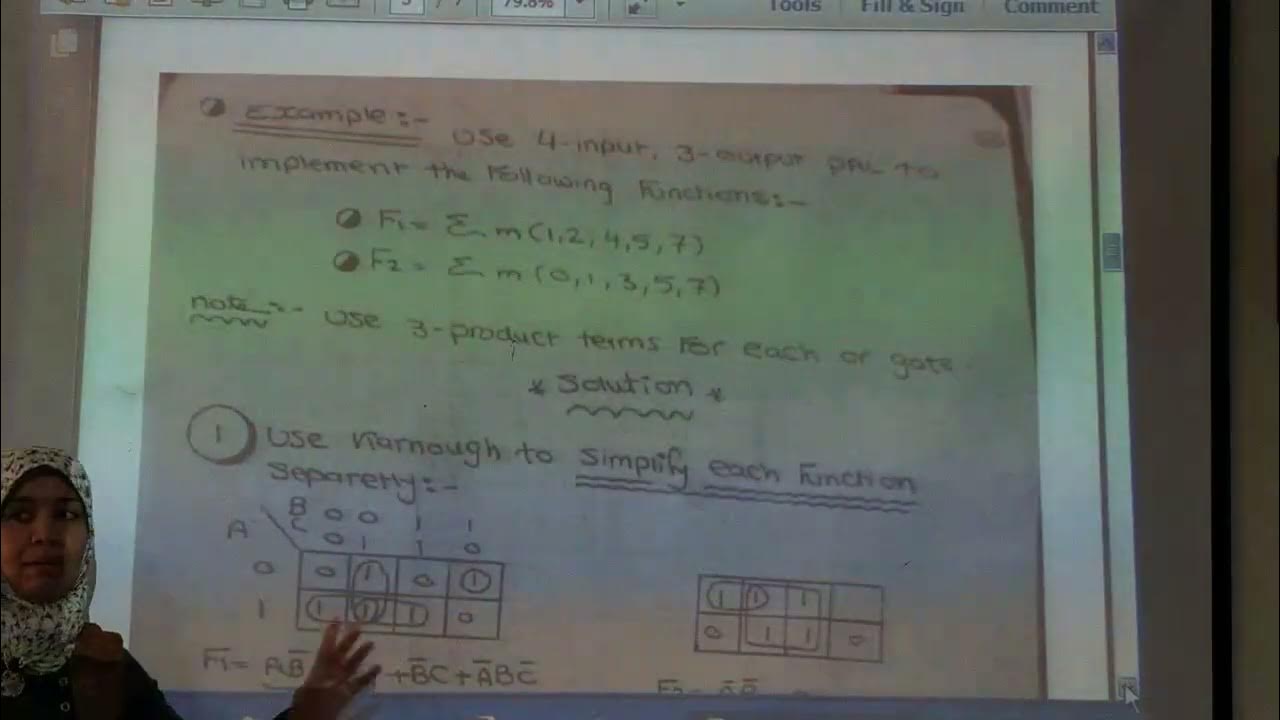 79.8%
Tools Fill & Sign Comment
Example:- Use 4-input, 3-output PAL to
implement the Following Functions:-
F1= Σ m(1,2,4,5,7)
F2= Σ m(0,1,3,5,7)
note:- Use 3-product terms For each or gate.
* Solution *
1 Use Karnough to Simplify each Function
Separetly:-
B 0 0 1 1
A C 0 1 1 0
0 0 1 0 1 1 1 1
1 1 1 1 0 0 1 1 0
F1= AB̅ +B̅C+A̅BC̅
F2= A̅B̅